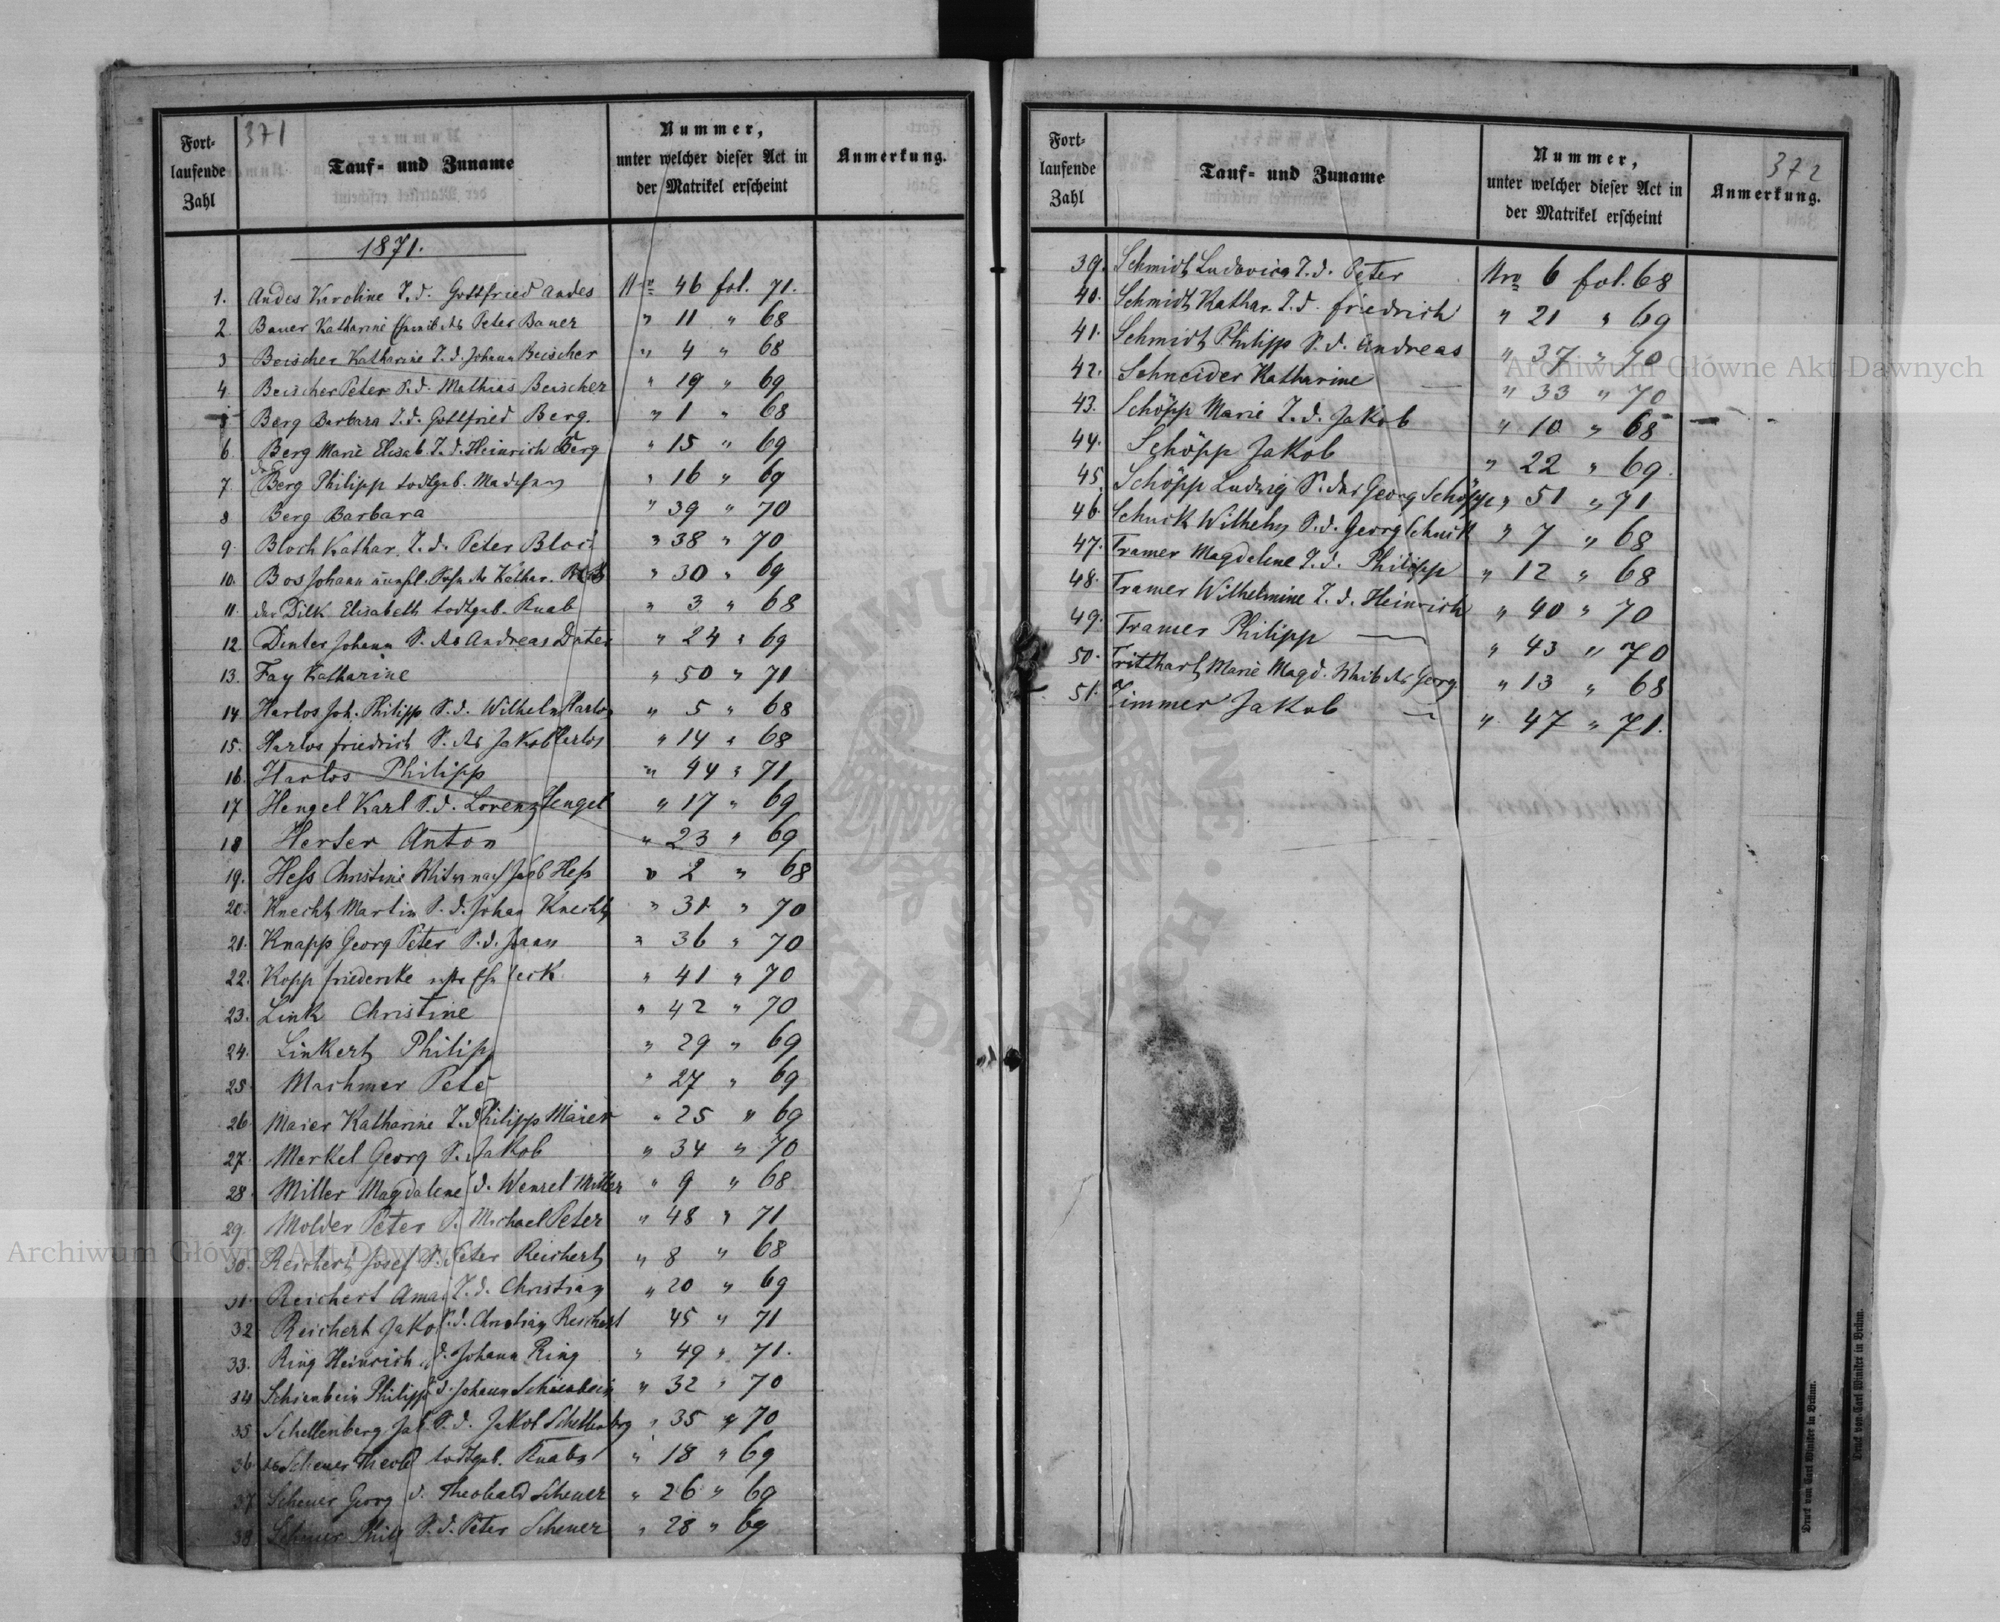 371
Fort-
laufende
Zahl
Tauf- und Zuname
Nummer,
unter welcher dieser Act in
der Matrikel erscheint
Anmerkung.
1871.
1. Andes Karoline T. d. Gottfried Andes Nro 46 fol. 71.
2. Bauer Katharine Peter Bauer " 11 " 68
3 Beischer Katharine T. d. Johann Beischer " 4 " 68
4. Beischer Peter S. d. Mathias Beischer " 19 " 69
5 Berg Barbara T. d. Gottfried Berg. " 1 " 68
6. Berg Marie Elisab. T. d. Heinrich Berg " 15 " 69
7. Berg Philipp todtgeb. " 16 " 69
8 Berg Barbara " 39 " 70
9. Bloch Kathar. T. d. Peter Bloch " 38 " 70
10. Bos Johann Kathar. " 30 " 69
11. der Dilk Elisabeth todtgeb. Knab " 3 " 68
12. Denter Johann S. des Andreas Denter " 24 " 69
13. Fay Katharine " 50 " 71
14 Harlos Joh. Philipp S. d. Wilhelm Harlos " 5 " 68
15. Harlos Friedrich S. des Jakob Harlos " 14 " 68
16. Harlos Philipp " 44 " 71
17 Hengel Karl S. d. Lorenz Hengel " 17 " 69
18 Herter Anton " 23 " 69
19. Heß Christine Heß " 2 " 68
20. Knecht Martin S. d. Johan Knecht " 31 " 70
21. Knapp Georg Peter S. d. " 36 " 70
22. Kopp Friedericke " 41 " 70
23. Link Christine " 42 " 70
24. Linkert Philipp " 29 " 69
25. Machmer Peter " 27 " 69
26 Maier Katharine T. d. Philipp Maier " 25 " 69
27. Merkel Georg S. d. Jakob " 34 " 70
28. Miller Magdalene d. Wenzel Miller " 9 " 68
29. Molder Peter S. Michael Peter " 48 " 71
30. Reichert Josef S. d. Peter Reichert " 8 " 68
31. Reichert T. d. Christian " 20 " 69
32 Reichert Jakob S. d. Christian Reichert 45 " 71
33. Ring Heinrich d. Johann Ring " 49 " 71.
34 Schienbein Philipp d. Johann Schienbein " 32 " 70
35 Schellenberg Jak S. d. Jakob Schellenberg " 35 " 70
36 Scheuer todtgeb. Knabe " 18 " 69
37 Scheuer Georg d. Theobald Scheuer " 26 " 69
38 Scheuer Philipp S. d. Peter Scheuer " 28 " 69
372
Fort-
laufende
Zahl
Tauf- und Zuname
Nummer,
unter welcher dieser Act in
der Matrikel erscheint
Anmerkung.
39. Schmidt Ludovica T. d. Peter Nro 6 fol. 68
40. Schmidt Kathar. T. d. Friedrich " 21 " 69
41. Schmidt Philipp S. d. Andreas " 37 " 70
42. Schneider Katharine — " 33 " 70
43. Schöpp Marie T. d. Jakob " 10 " 68
44. Schöpp Jakob " 22 " 69.
45. Schöpp Ludwig S. des Georg Schöpp " 51 " 71
46. Schuck Wilhelm S. d. Georg Schuck " 7 " 68
47. Tramer Magdalene T. d. Philipp " 12 " 68
48. Tramer Wilhelmine T. d. Heinrich " 40 " 70
49. Tramer Philipp — " 43 " 70
50. Tritthart Marie Magd. Weib des Georg " 13 " 68
51. Zimmer Jakob — " 47 " 71.
Druck von Carl Winiker in Brünn.
Druck von Carl Winiker in Brünn.
Archiwum Główne Akt Dawnych
Archiwum Główne Akt Dawnych